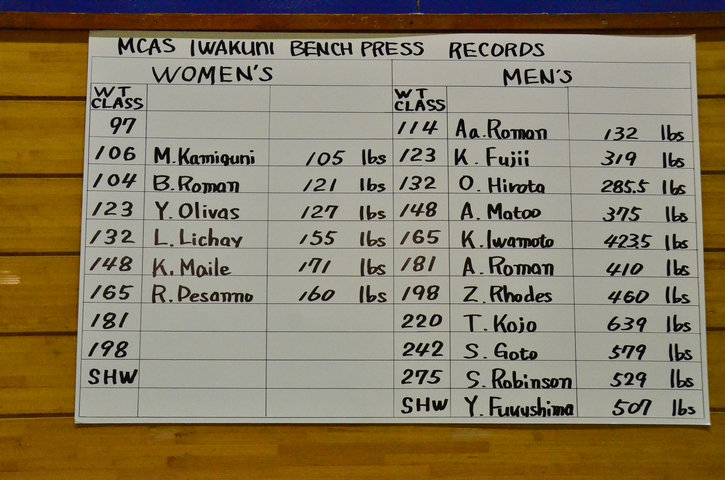 MCAS IWAKUNI BENCH PRESS RECORDS
WOMEN'S MEN'S
WT CLASS WT CLASS
97 114 Aa. Roman 132 lbs
106 M. Kamiguni 105 lbs 123 K. Fujii 319 lbs
104 B. Roman 121 lbs 132 O. Hirota 285.5 lbs
123 Y. Olivas 127 lbs 148 A. Matoo 375 lbs
132 L. Lichay 155 lbs 165 K. Iwamoto 423.5 lbs
148 K. Maile 171 lbs 181 A. Roman 410 lbs
165 R. Desanno 160 lbs 198 Z. Rhodes 460 lbs
181 220 T. Kojo 639 lbs
198 242 S. Goto 579 lbs
SHW 275 S. Robinson 529 lbs
SHW Y. Furushima 507 lbs